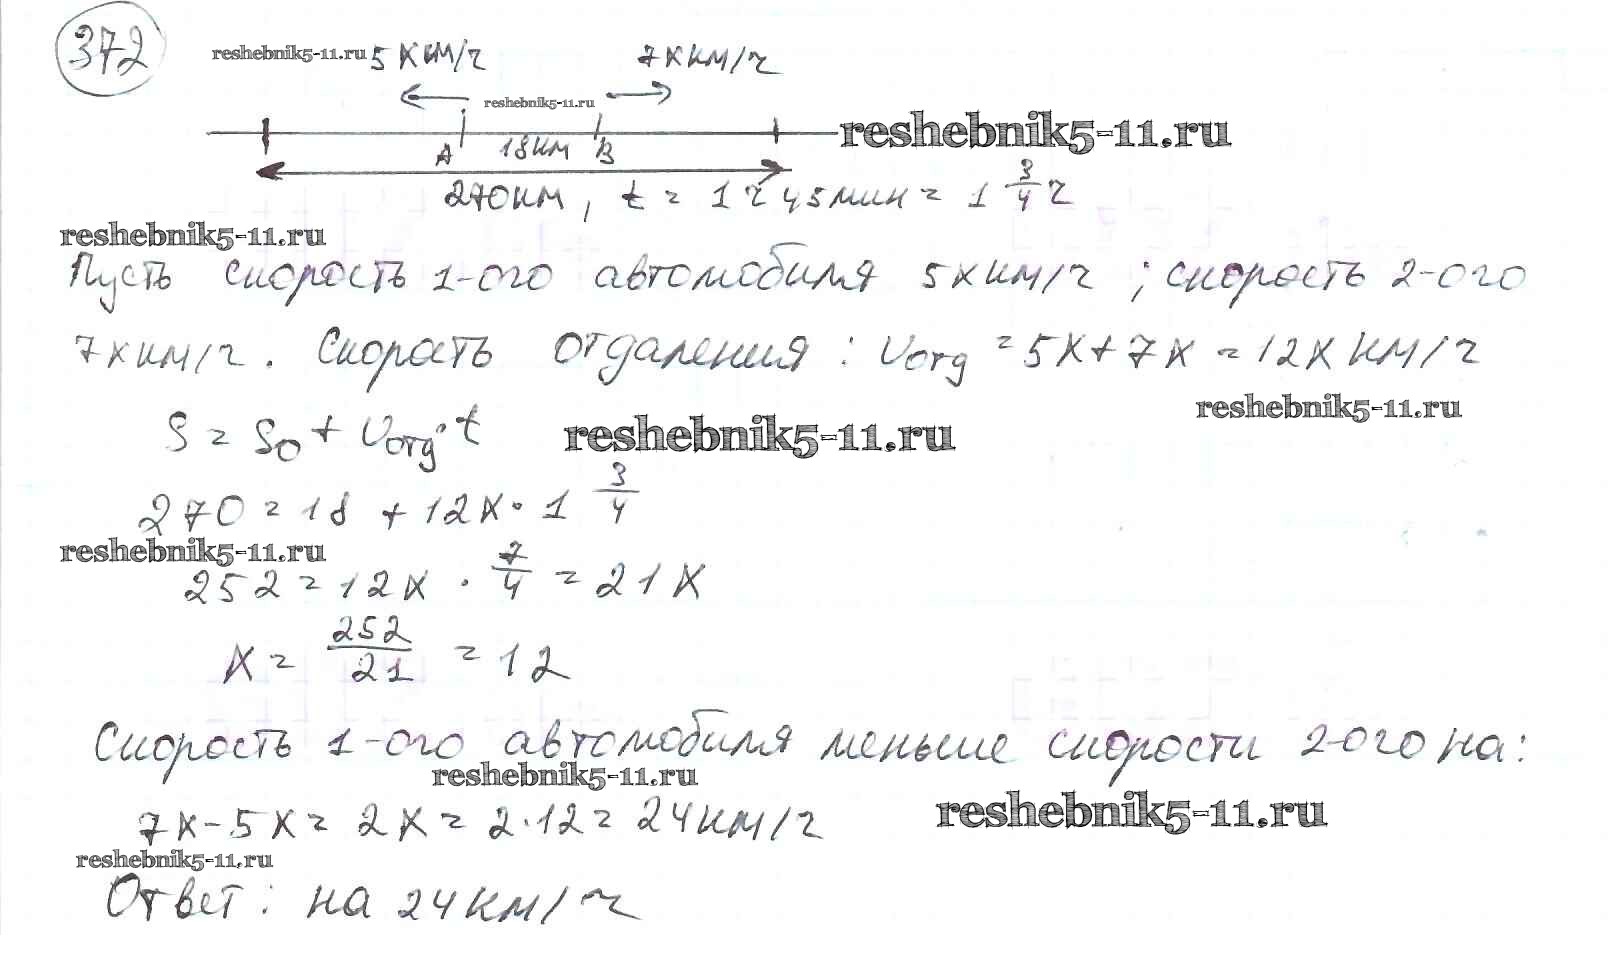 372
reshebnik5-11.ru 5 км/ч 7х км/ч
reshebnik5-11.ru
reshebnik5-11.ru
А 18км В
270км, t = 1ч 45мин = 1 3/4 ч
reshebnik5-11.ru
Пусть скорость 1-ого автомобиля 5х км/ч ; скорость 2-ого
7х км/ч. Скорость отдаления : Vотд = 5х + 7х = 12х км/ч
reshebnik5-11.ru
S = S0 + Vотд · t reshebnik5-11.ru
270 = 18 + 12х · 1 3/4
reshebnik5-11.ru
252 = 12х · 7/4 = 21х
х = 252/21 = 12
Скорость 1-ого автомобиля меньше скорости 2-ого на:
reshebnik5-11.ru
7х - 5х = 2х = 2·12 = 24км/ч reshebnik5-11.ru
reshebnik5-11.ru
Ответ: на 24км/ч